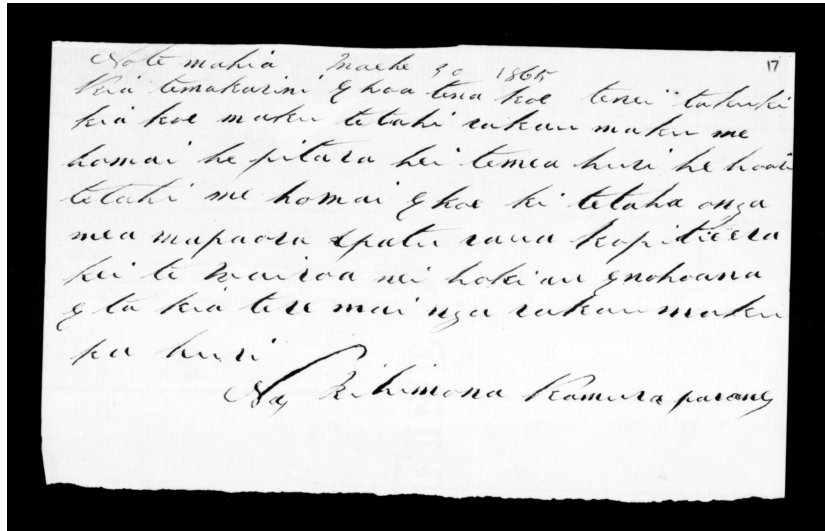 17
No te mahia Maehe 30 1865
Kia temakarini E hoa tena koe tenei takuki
kia koe maku tetahi rakau maku me
homai he pitara hei temea huri he hoari
tetahi me homai E koe ki tetaha onga
mea mapaora Epatu raua kopitiera
kei te Wairoa nei hoki au Enohoana
E ta kia tere mai nga rakau maku
ka huri
Na Kihimona Kamura